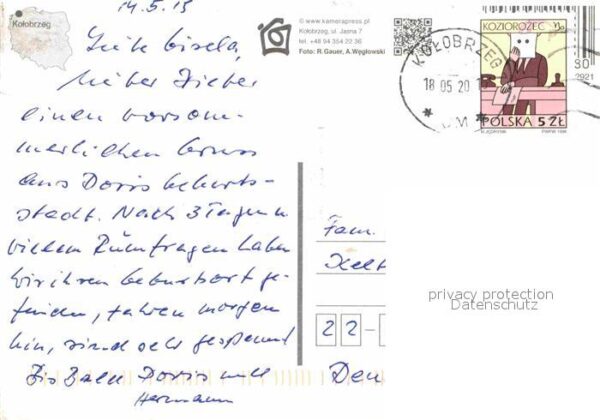 14.5.13
Liebe Gisela,
lieber Dieter
einen vorsom-
merlichen Gruss
aus Doris Geburts-
stadt. Nach 3 Tagen u.
vielem Rumfragen haben
wir ihren Geburtsort ge-
funden, fahren morgen
hin, sind sehr gespannt
Bis bald Doris und
Hermann
Kołobrzeg
© www.kamerapress.pl
Kołobrzeg, ul. Jasna 7
tel. +48 94 354 22 36
Foto: R.Gauer, A.Węgłowski
KOŁOBRZEG
18 05 20
KOZIOROŻEC
POLSKA 5 ZŁ
2921
Fam.
22-
privacy protection
Datenschutz